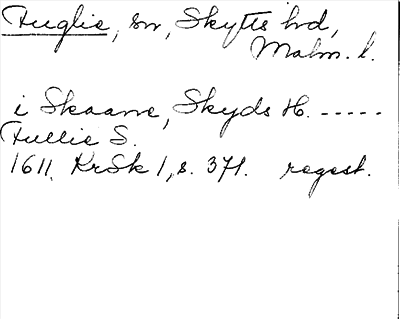 Fuglie, sn, Skytts hrd,
Malm. l.
i Skaane, Skyds H. -----
Fullie S.
1611. KrSk 1, s. 371. regest.